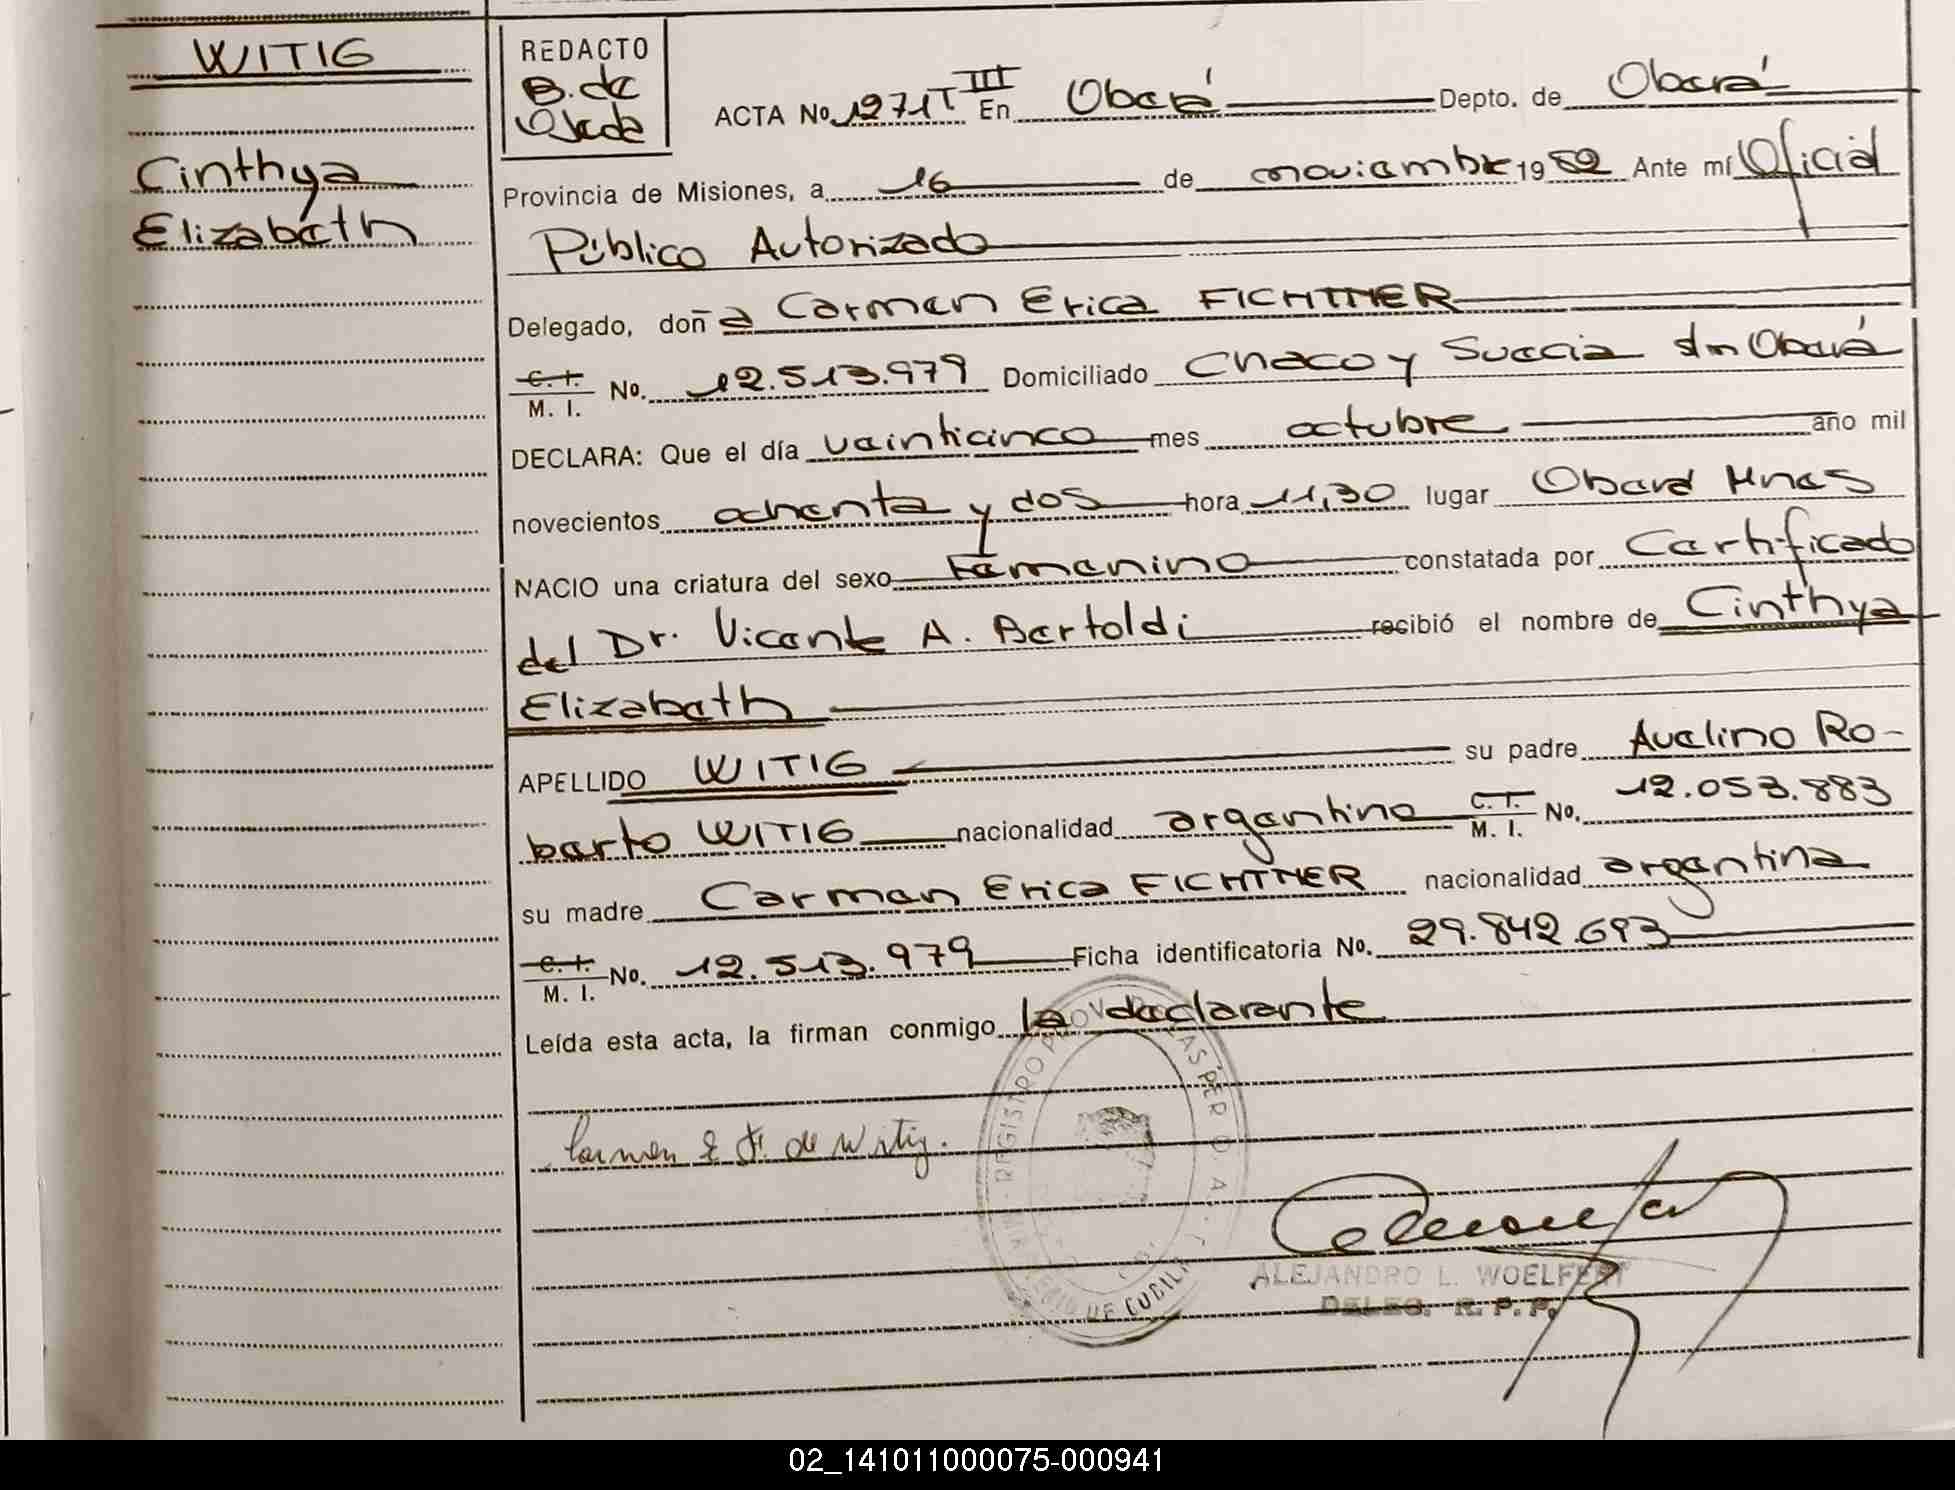 WITIG
Cinthya
Elizabeth
REDACTO
B. de
Ojeda
ACTA No 1271 T III En Oberá Depto. de Oberá
Provincia de Misiones, a 16 de noviembre 1982 Ante mí Oficial
Público Autorizado
Delegado, doña Carmen Erica FICHTNER
C. I. / M. I. No. 12.513.979 Domiciliado Chaco y Suecia sn Oberá
DECLARA: Que el día veinticinco mes octubre año mil
novecientos ochenta y dos hora 11,30 lugar Oberá Mnes
NACIO una criatura del sexo Femenino constatada por Certificado
del Dr. Vicente A. Bertoldi recibió el nombre de Cinthya
Elizabeth
APELLIDO WITIG su padre Avelino Ro-
berto WITIG nacionalidad argentino C. I. / M. I. No. 12.053.883
su madre Carmen Erica FICHTNER nacionalidad argentina
C. I. / M. I. No. 12.513.979 Ficha identificatoria No. 29.842.693
Leída esta acta, la firman conmigo la declarante
Carmen E F. de Witig.
ALEJANDRO L. WOELFERT
DELEG. R. P. P.
02_141011000075-000941